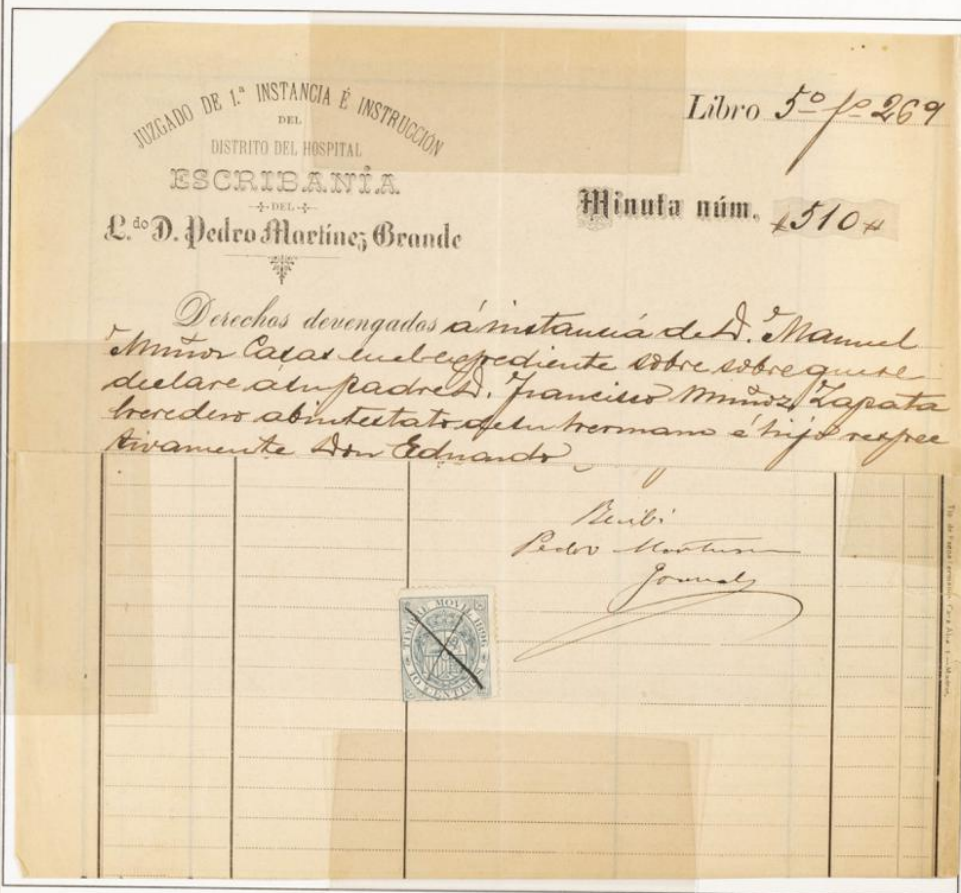 JUZGADO DE 1.ª INSTANCIA É INSTRUCCIÓN
DEL
DISTRITO DEL HOSPITAL
ESCRIBANÍA
DEL
L.do D. Pedro Martínez Grande
Libro 5º fº 269
Minuta núm. 510
Derechos devengados á instancia de D. Manuel
Muñoz Casas en el expediente sobre sobre que se
declare a su padre D. Francisco Muñoz Zapata
heredero abintestato de su hermano é hijo respec
tivamente Don Eduardo
Recibi
Pedro Martinez
TIMBRE MOVIL 1896
10 CENTIMOS